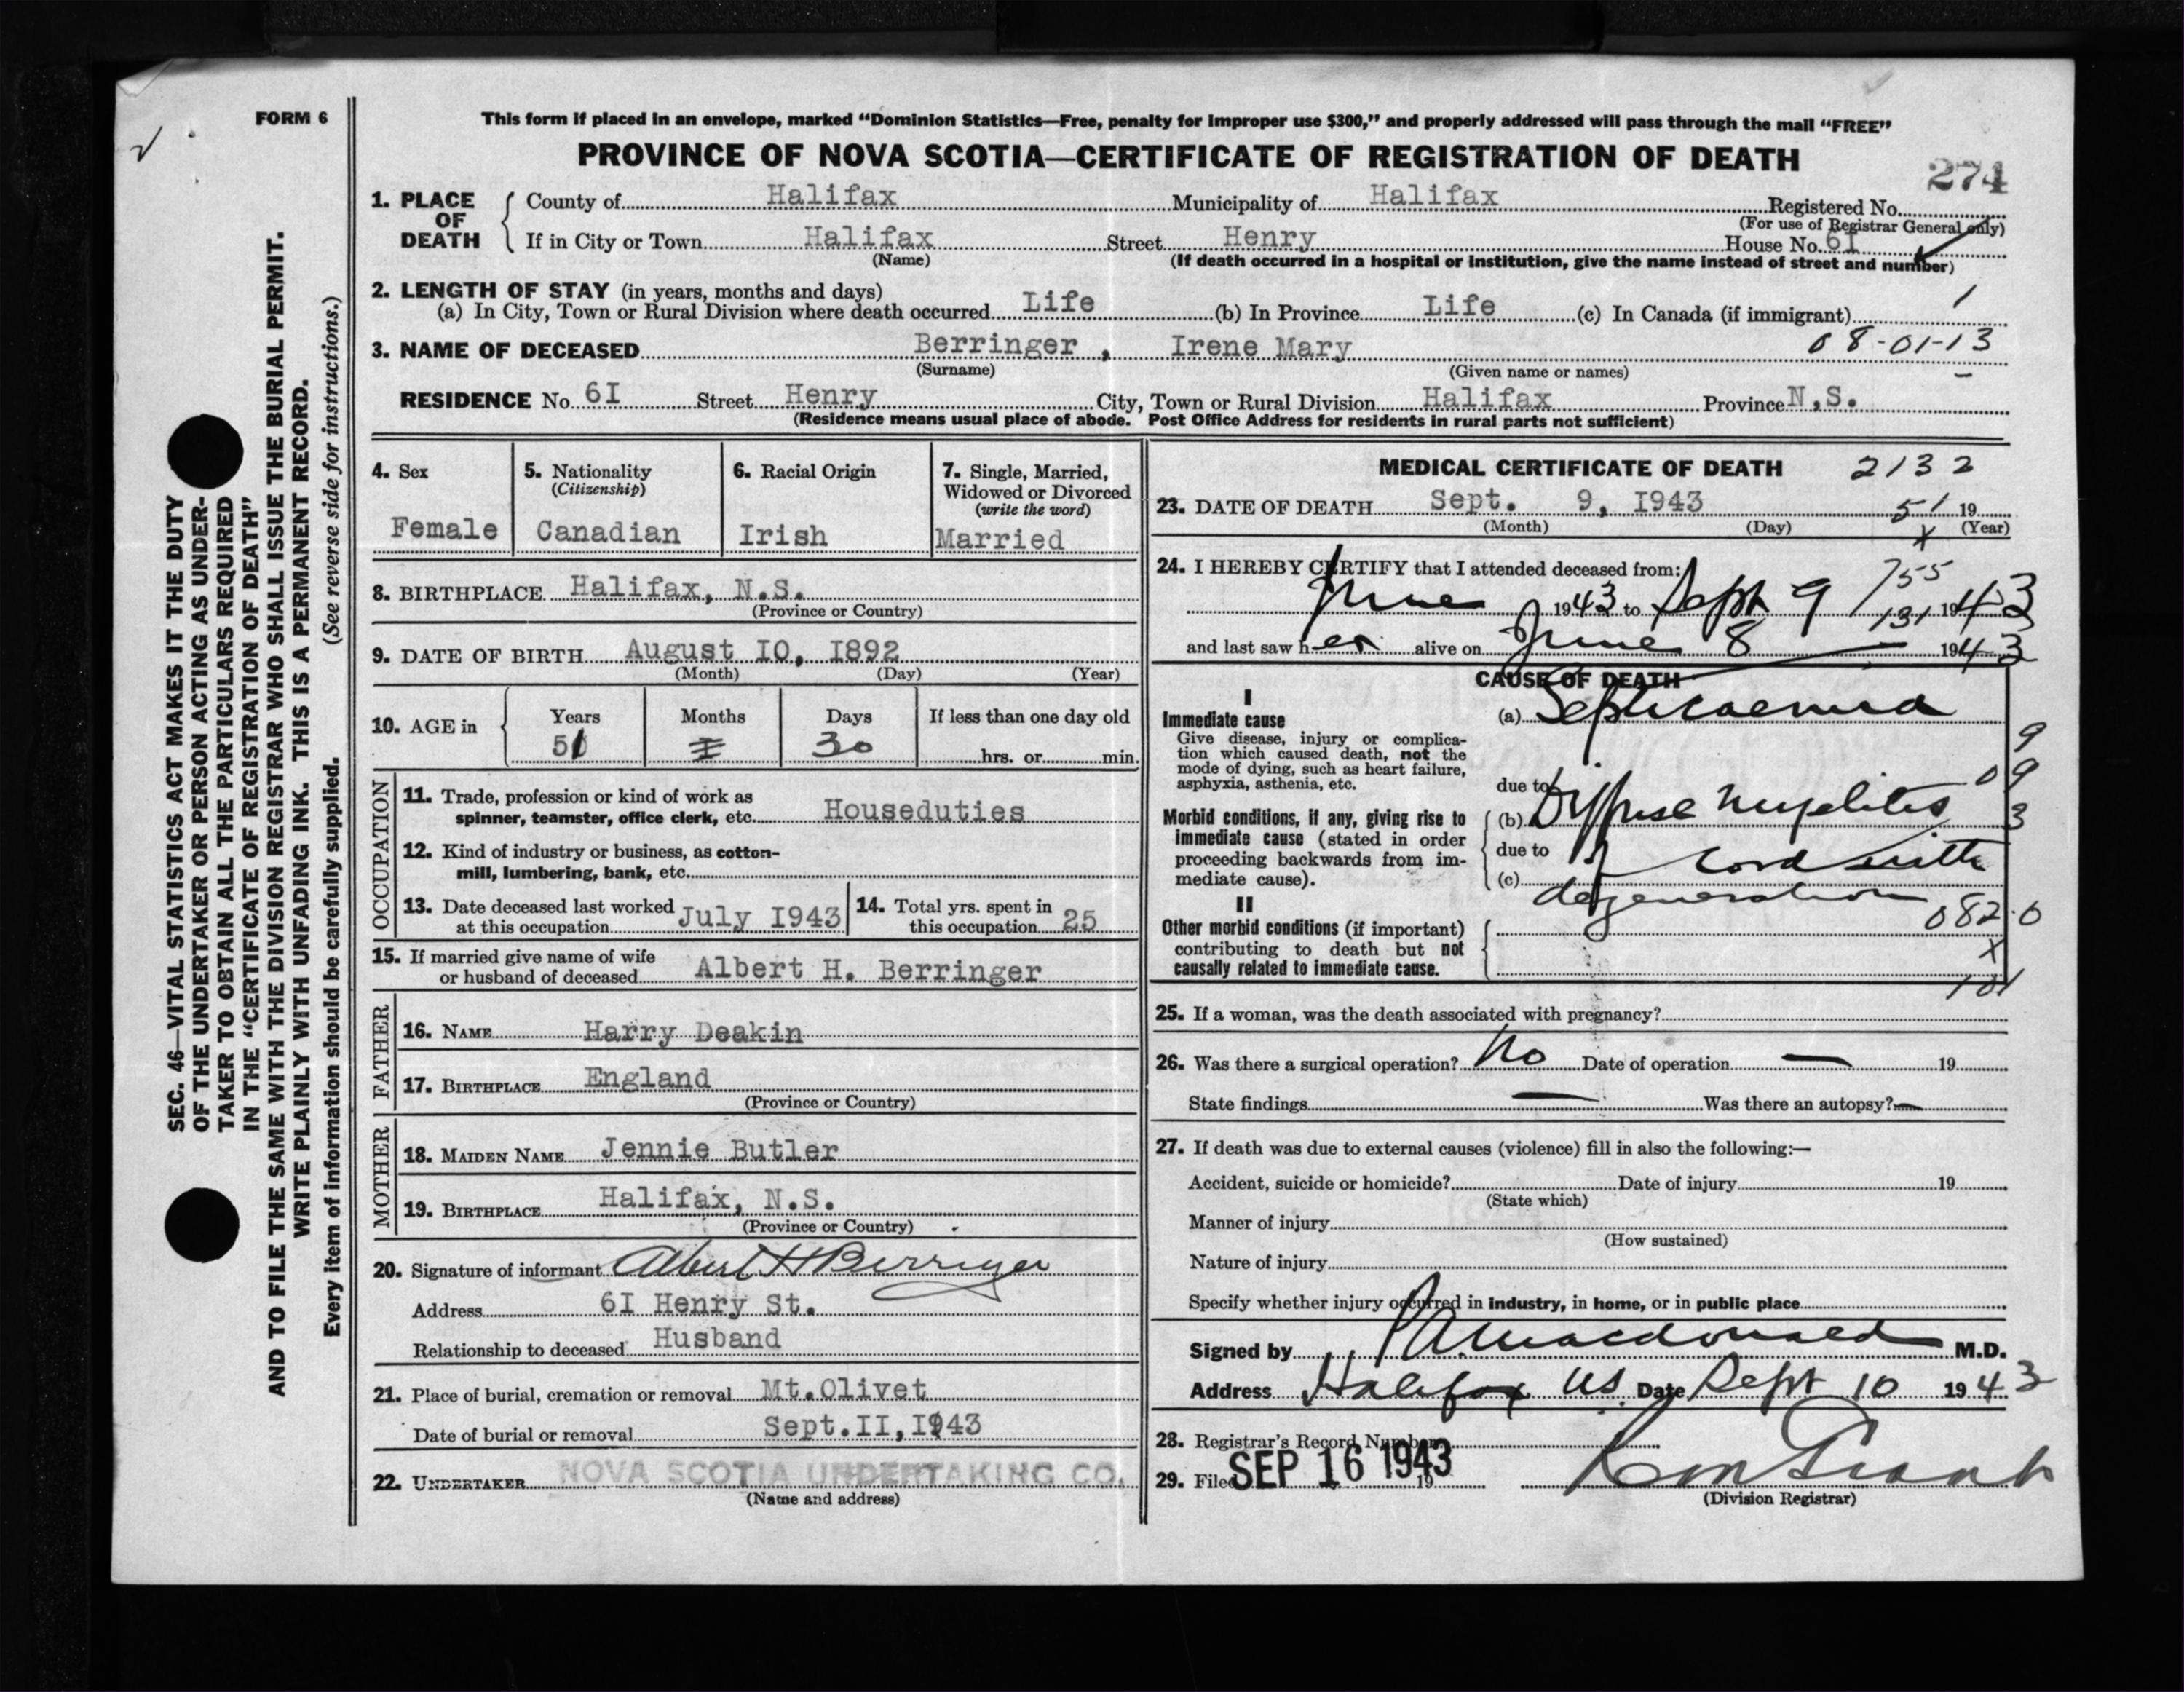 FORM 6
This form if placed in an envelope, marked “Dominion Statistics—Free, penalty for improper use $300,” and properly addressed will pass through the mail “FREE”
PROVINCE OF NOVA SCOTIA—CERTIFICATE OF REGISTRATION OF DEATH
274
1. PLACE OF DEATH County of Halifax Municipality of Halifax Registered No.
(For use of Registrar General only)
If in City or Town Halifax Street Henry House No. 6I
(Name) (If death occurred in a hospital or institution, give the name instead of street and number)
2. LENGTH OF STAY (in years, months and days)
(a) In City, Town or Rural Division where death occurred Life (b) In Province Life (c) In Canada (if immigrant) 1
3. NAME OF DECEASED Berringer , Irene Mary 08-01-13
(Surname) (Given name or names)
RESIDENCE No. 6I Street Henry City, Town or Rural Division Halifax Province N.S.
(Residence means usual place of abode. Post Office Address for residents in rural parts not sufficient)
4. Sex
Female
5. Nationality
(Citizenship)
Canadian
6. Racial Origin
Irish
7. Single, Married,
Widowed or Divorced
(write the word)
Married
8. BIRTHPLACE Halifax, N.S.
(Province or Country)
9. DATE OF BIRTH August IO, I892
(Month) (Day) (Year)
10. AGE in
Years Months Days If less than one day old
51 I 30 hrs. or min.
OCCUPATION
11. Trade, profession or kind of work as
spinner, teamster, office clerk, etc. Houseduties
12. Kind of industry or business, as cotton-
mill, lumbering, bank, etc.
13. Date deceased last worked
at this occupation July I943
14. Total yrs. spent in
this occupation 25
15. If married give name of wife
or husband of deceased Albert H. Berringer
FATHER
16. NAME Harry Deakin
17. BIRTHPLACE England
(Province or Country)
MOTHER
18. MAIDEN NAME Jennie Butler
19. BIRTHPLACE Halifax, N.S.
(Province or Country)
20. Signature of informant Albert H Berringer
Address 6I Henry St.
Relationship to deceased Husband
21. Place of burial, cremation or removal Mt.Olivet
Date of burial or removal Sept.II,I943
22. UNDERTAKER NOVA SCOTIA UNDERTAKING CO.
(Name and address)
MEDICAL CERTIFICATE OF DEATH 2132
23. DATE OF DEATH Sept. 9, I943 51 19
(Month) (Day) (Year)
x
24. I HEREBY CERTIFY that I attended deceased from: 755
June 1943 to Sept 9 131 1943
and last saw her alive on June 8 1943
CAUSE OF DEATH
I
Immediate cause
Give disease, injury or complica-
tion which caused death, not the
mode of dying, such as heart failure,
asphyxia, asthenia, etc.
(a) Septicaemia
9
due to 09
Morbid conditions, if any, giving rise to
immediate cause (stated in order
proceeding backwards from im-
mediate cause).
(b) Diffuse myelitis 3
due to of cord with
(c) degeneration
II
Other morbid conditions (if important)
contributing to death but not
causally related to immediate cause.
082.0
x
101
25. If a woman, was the death associated with pregnancy?
26. Was there a surgical operation? No Date of operation — 19
State findings — Was there an autopsy? —
27. If death was due to external causes (violence) fill in also the following:—
Accident, suicide or homicide? Date of injury 19
(State which)
Manner of injury
(How sustained)
Nature of injury
Specify whether injury occurred in industry, in home, or in public place
Signed by P A Macdonald M.D.
Address Halifax NS. Date Sept 10 1943
28. Registrar's Record Number
29. Filed SEP 16 1943 19
(Division Registrar)
SEC. 46—VITAL STATISTICS ACT MAKES IT THE DUTY
OF THE UNDERTAKER OR PERSON ACTING AS UNDER-
TAKER TO OBTAIN ALL THE PARTICULARS REQUIRED
IN THE “CERTIFICATE OF REGISTRATION OF DEATH”
AND TO FILE THE SAME WITH THE DIVISION REGISTRAR WHO SHALL ISSUE THE BURIAL PERMIT.
WRITE PLAINLY WITH UNFADING INK. THIS IS A PERMANENT RECORD.
Every item of information should be carefully supplied. (See reverse side for instructions.)